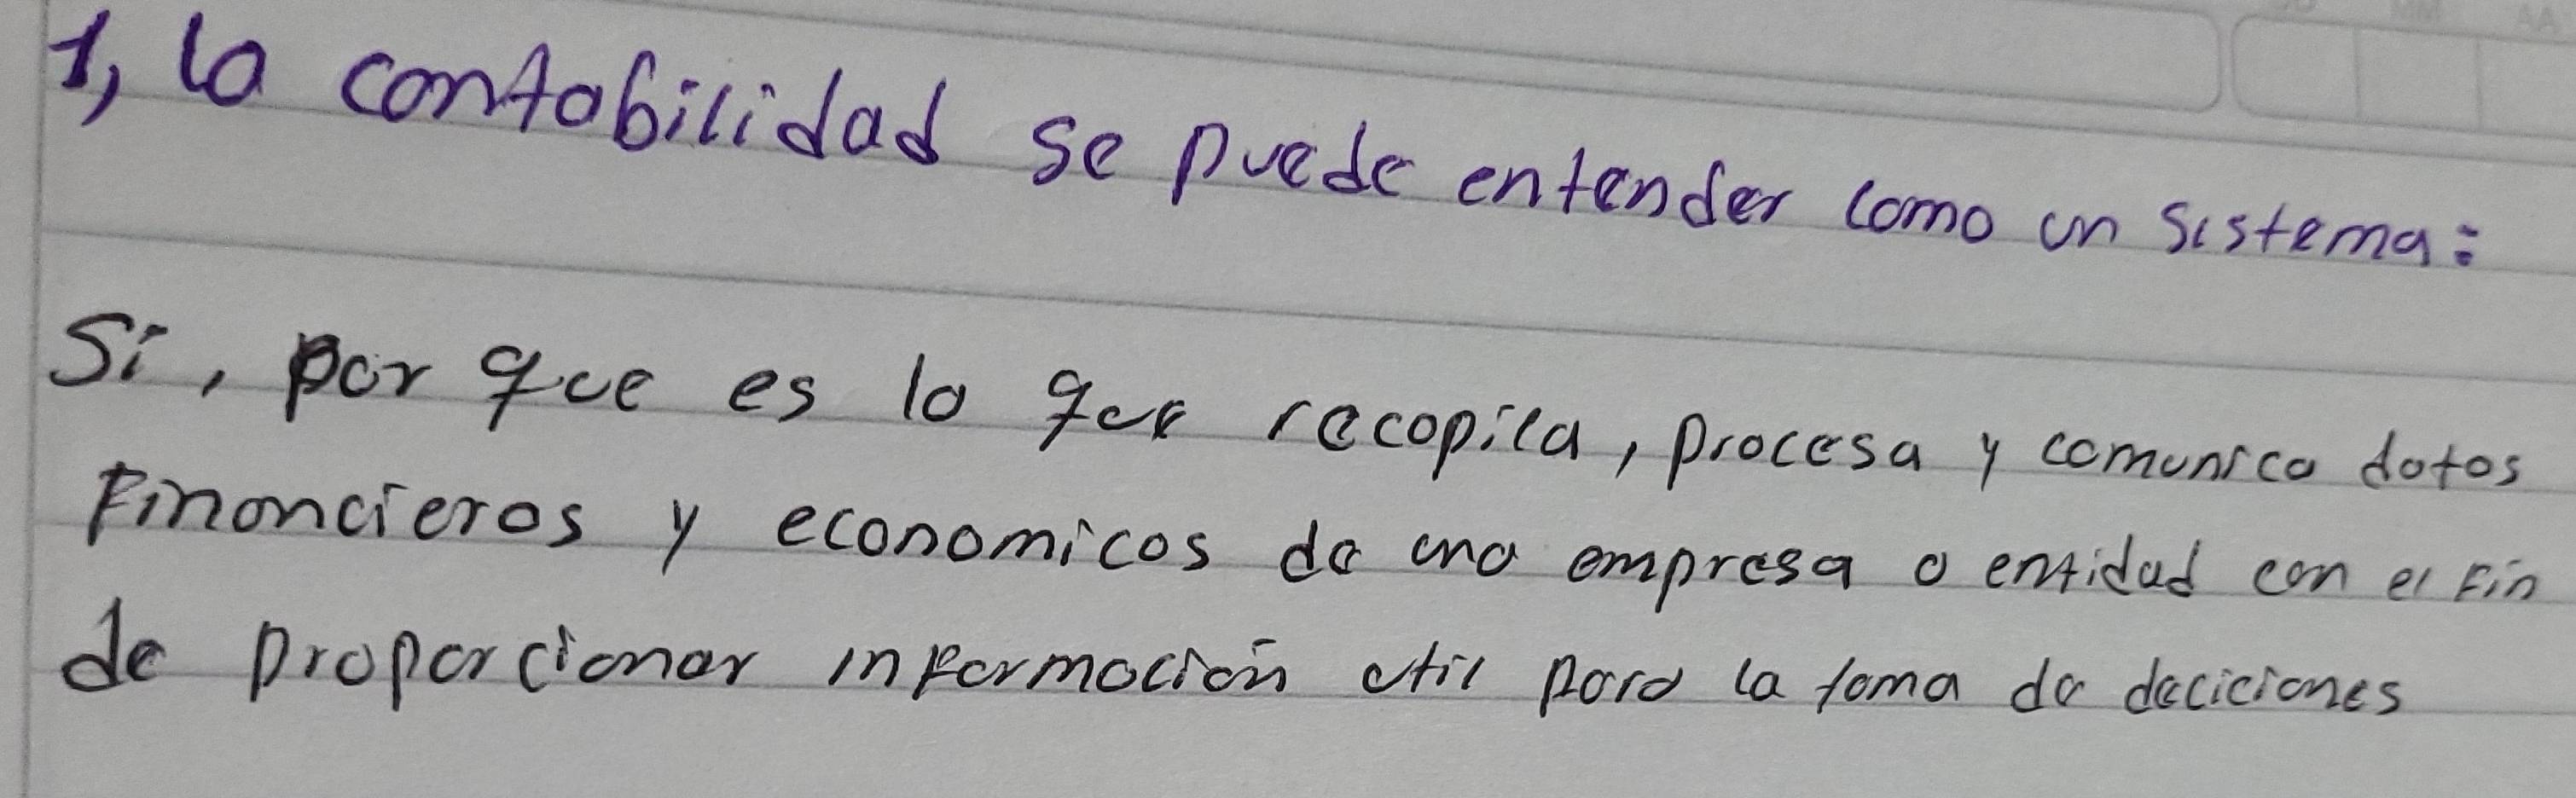 1, la contabilidad se puede entender como un sistema:
Si, por que es lo que recopila, procesa y comunica datos
Financieros y economicos de una empresa o entidad con el Fin
de proporcionar inFormación util para la toma de deciciones